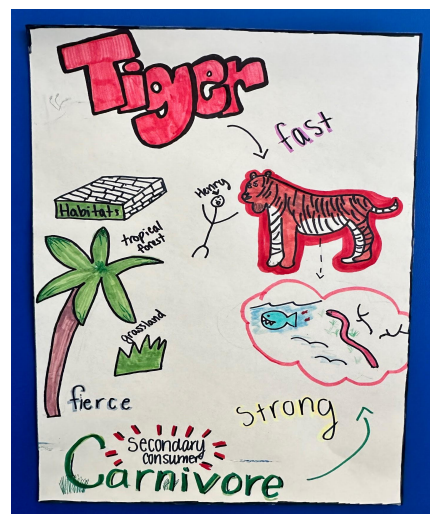 Tiger
fast
Henry
Habitats
tropical
forest
grassland
fierce
strong
secondary
consumer
Carnivore